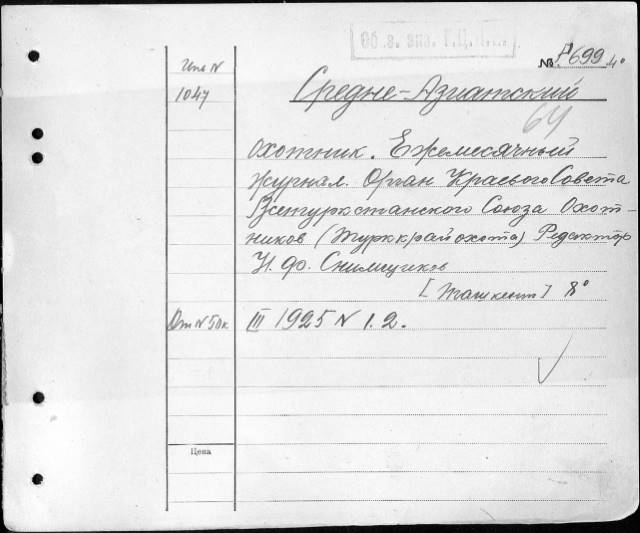 Об. з. экз. Г.Ц.К.П.
№ P699 4°
Инв N
1047
Средне-Азиатский
64
охотник. Ежемесячный
журнал. Орган Краевого Совета
Всетуркстанского Союза Охот-
ников (Турккрайохота) Редактор
И. Ф. Снимщиков
[Ташкент] 8°
От N 50к
III 1925 N 1. 2.
Цена